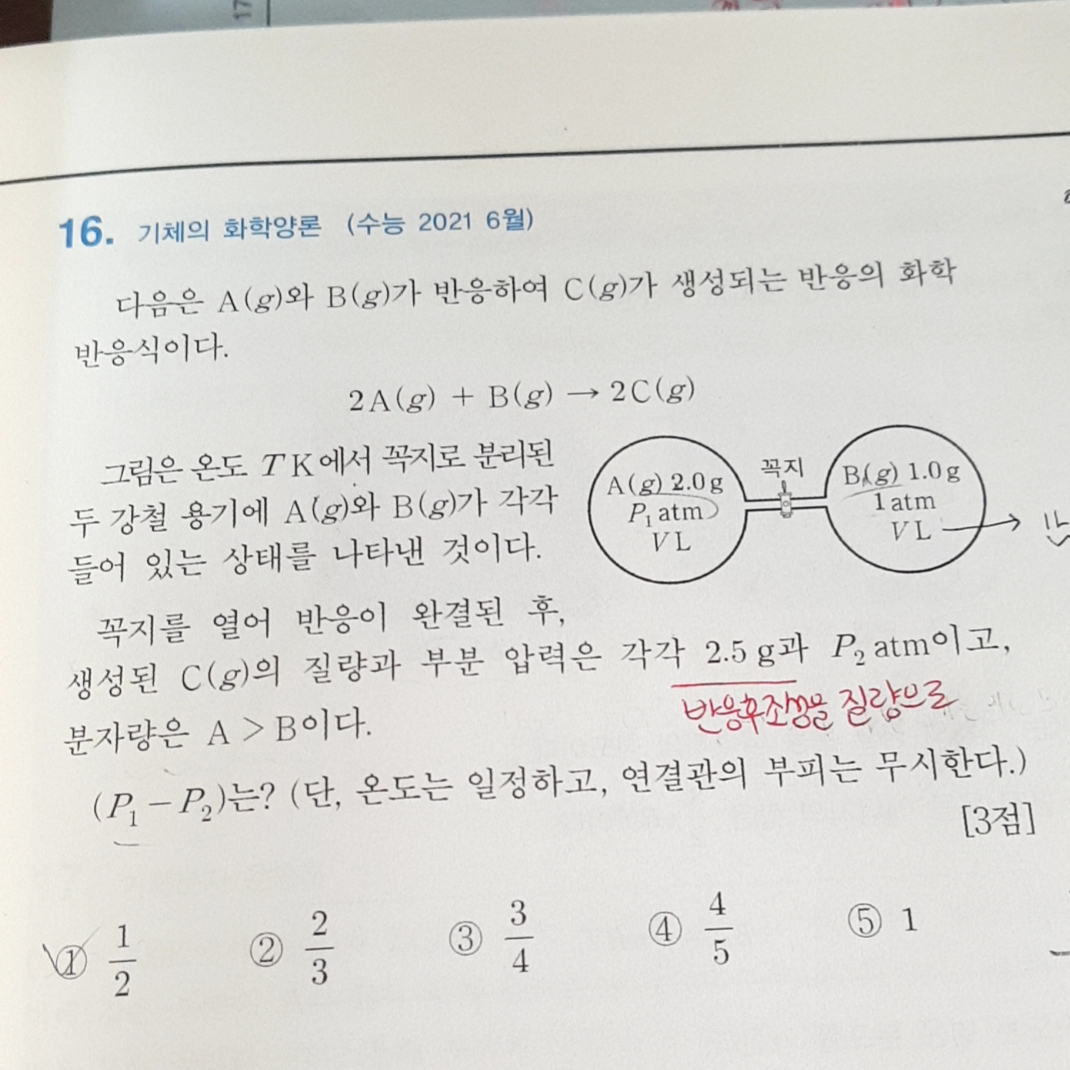 17
16. 기체의 화학양론 (수능 2021 6월)
다음은 A(g)와 B(g)가 반응하여 C(g)가 생성되는 반응의 화학
반응식이다.
2A(g) + B(g) → 2C(g)
그림은 온도 T K에서 꼭지로 분리된
두 강철 용기에 A(g)와 B(g)가 각각
들어 있는 상태를 나타낸 것이다.
A(g) 2.0 g
P₁ atm
V L
꼭지
B(g) 1.0 g
1 atm
V L
꼭지를 열어 반응이 완결된 후,
생성된 C(g)의 질량과 부분 압력은 각각 2.5 g과 P₂ atm이고,
반응후조성물 질량으로
분자량은 A > B이다.
(P₁ − P₂)는? (단, 온도는 일정하고, 연결관의 부피는 무시한다.)
[3점]
① 1/2 ② 2/3 ③ 3/4 ④ 4/5 ⑤ 1